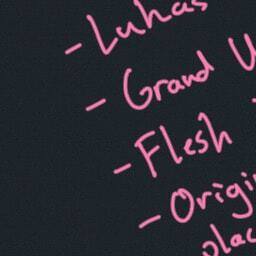 - Lukas
- Grand U
- Flesh
- Origi
plac